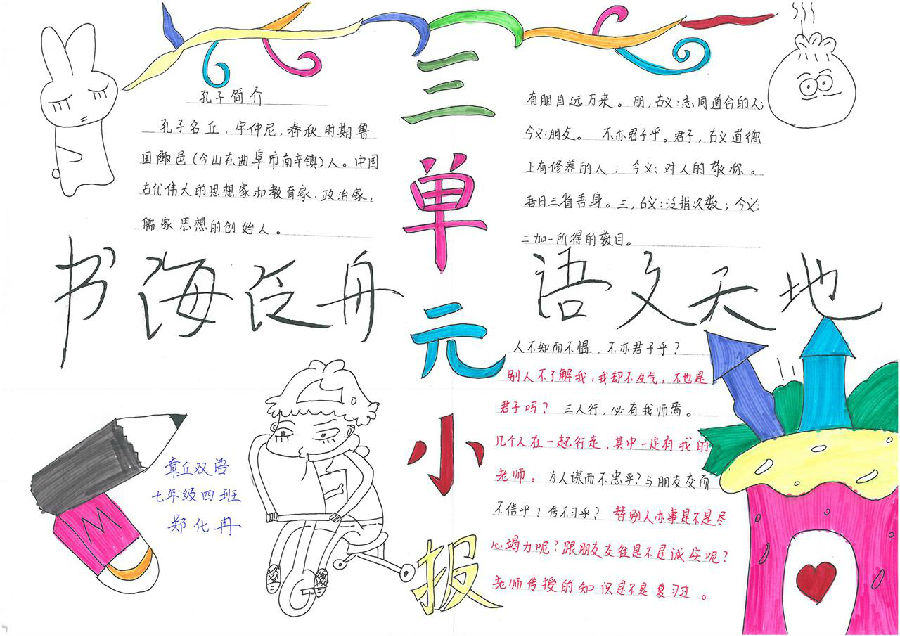 三单元小报
孔子简介
孔子名丘,字仲尼,春秋时期鲁
国陬邑(今山东曲阜市南辛镇)人。中国
古代伟大的思想家和教育家、政治家,
儒家思想的创始人。
有朋自远方来。朋,古义:志同道合的人
今义:朋友。 不亦君子乎。君子,古义道德
上有修养的人; 今义:对人的敬称。
每日三省吾身。三,古义:泛指次数;今义:
二加一所得的数目。
书海泛舟
语文天地
人不知而不愠,不亦君子乎?
别人不了解我,我却不生气,不也是
君子吗? 三人行,必有我师焉。
几个人在一起行走,其中一定有我的
老师。为人谋而不忠乎?与朋友交而
不信乎?传不习乎? 替别人办事是不是尽
心竭力呢?跟朋友交往是不是诚实呢?
老师传授的知识是不是复习过。
七年级四班